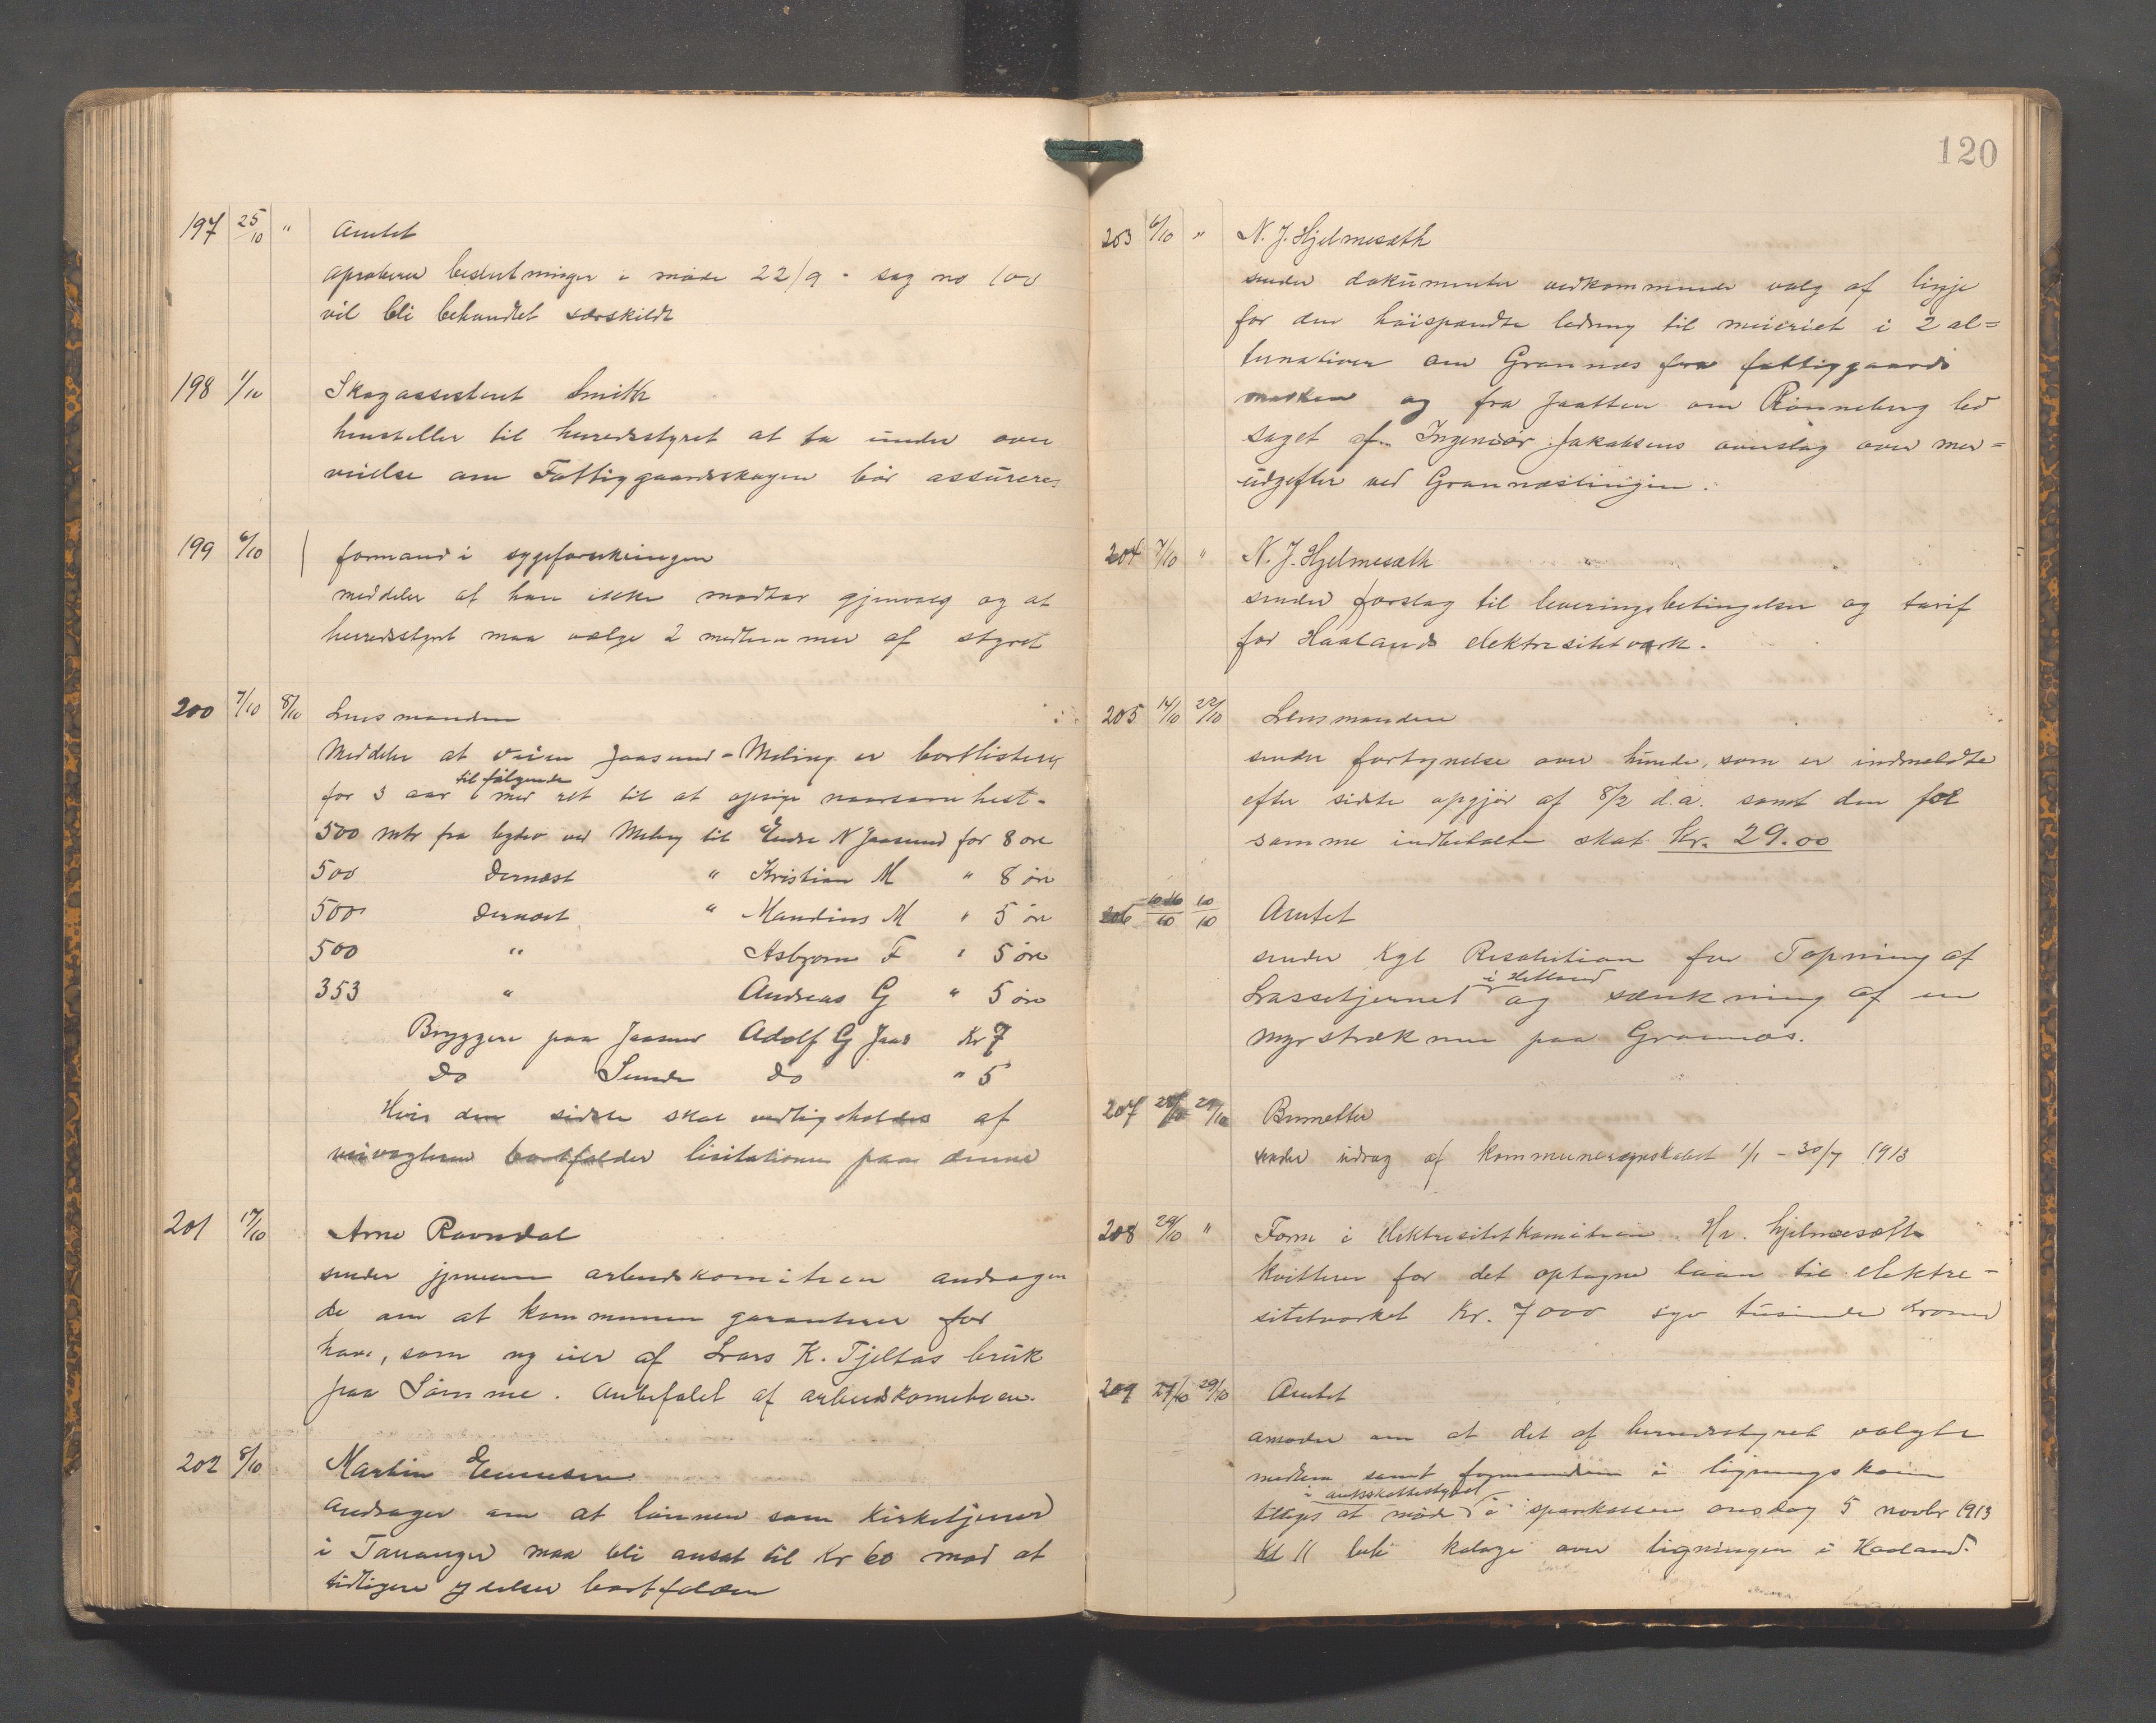 197 25/10 " Amtet
aproberer beslutninger i møde 22/9 - sag no 100
vil bli behandlet særskildt
198 1/10 Skogassistent Smith
henstiller til herredsstyret at ta under over
veielse om Fattiggaardsskogen bør assureres
199 6/10 formand i sygeforsikringen
meddeler at han ikke modtar gjenvalg og at
herredsstyret maa vælge 2 medlemmer af styret
200 7/10 8/10 Lensmanden
Meddeler at veien Jaasund - Meling er bortlisteret
til følgende
for 3 aar med ret til at opsige naarsomhelst -
500 mtr fra bydev ved Meling til Endre N Jaasund for 8 øre
500 dernæst " Kristian M " 8 øre
500 dernæst " Mandius M " 5 øre
500 " Asbjørn F " 5 øre
353 " Andreas G " 5 øre
Bryggen paa Jaasund Adolf G Jaas Kr 7
do Sande do " 5
Hvis den sidste skal vedligeholdes af
veivogteren bortfalder lisitationen paa denne
201 17/10 Arne Ravndal
sender gjennem arbeidskomiteen andragen
de om at kommunen garanterer for
ham, som ny eier af Lars K. Tjeltas bruk
paa Sømme. Anbefalet af arbeidskomiteen.
202 8/10 Martin
Andrager om at lønnen som kirketjener
i Tananger maa bli ansat til Kr 60 mod at
tidligere ydelser bortfalder
120
203 6/10 " N. J. Hjelmesæth
sender dokumenter vedkommende valg af linje
for den høispændte ledning til meieriet i 2 al=
ternativer om Grannes fra fattiggaards
marken og fra Jaatten om Rønneberg led
saget af Ingeniør Jakobsens overslag over mer=
udgifter ved Grannæslinjen.
204 7/10 " N. J. Hjelmesæth
sender forslag til leveringsbetingelser og tarif
for Haalands elektrisitetværk.
205 14/10 22/10 Lensmanden
sender fortegnelse over hunde, som er indmeldte
efter sidste opgjør af 8/2 d.a. samt den for
samme indbetalte skat Kr. 29.00
206 10/10 10/10 Amtet
sender Kgl Resolution for Tapning af
i Hetland
Lassetjernet og sænkning af en
myrstrækning paa Grannæs.
207 29/10 Brunetter
sender udrag af kommuneregnskabet 1/1 - 30/7 1913
208 29/10 " Form i elektrisitetkomiteen Hr. Hjelmesæth
kvitterer for det optagne laan til elektri-
sitetværket Kr. 7000 syv tusinde kroner
209 27/10 29/10 Amtet
anmoder om at det af herredsstyret valgte
medlem samt formanden i lignings kom
i amtsskattestyret
tilsiges at møde i sparkassen onsdag 5 novbr 1913
Kl 11 klage over ligningen i Haaland.